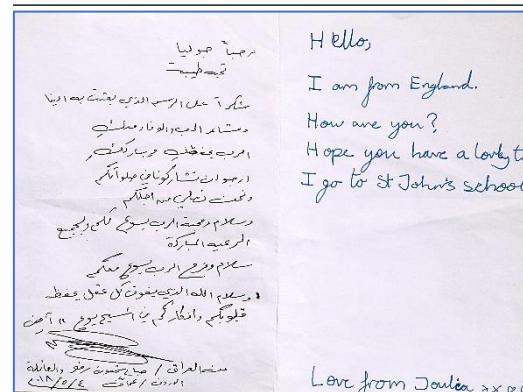 مرحباً جوليا
تحية طيبة
شكراً على الرسم الذي بعثت به الينا
ومشاعر الحب
الرب يحفظك ويباركك
ارجو ان تشاركونا في صلواتكم
ونحن نصلي من اجلكم
وسلام ومحبة الرب يسوع لكم ولجميع
الرعية المباركة
سلام وفرح الرب يسوع معكم
وسلام الله الذي يفوق كل عقل يحفظ
قلوبكم وافكاركم في المسيح يسوع آمين
من العراق / والعائلة
الاردن / عمان ٢٠١٨/٥/٤
Hello,
I am from England.
How are you?
Hope you have a lovely t
I go to St John's school
Love from Joulia xx